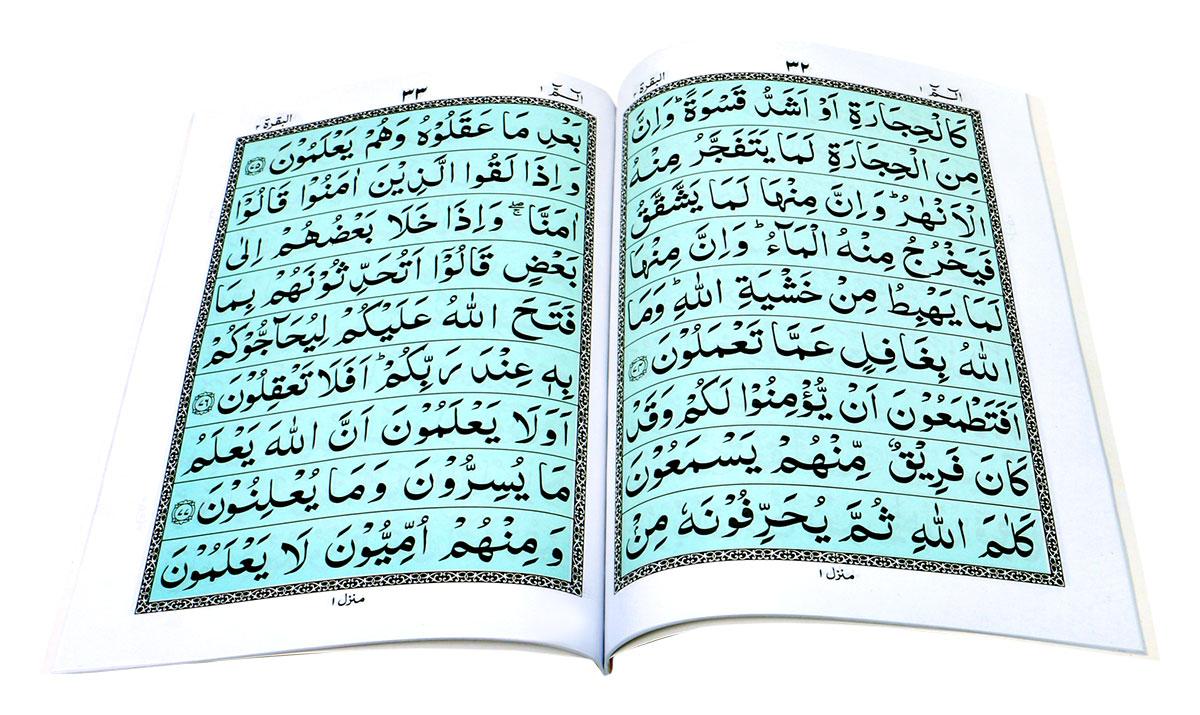 الٓمّٓ ۱
۳۲
البقرة ۲
كَالْحِجَارَةِ اَوْ اَشَدُّ قَسْوَةًؕ وَاِنَّ
مِنَ الْحِجَارَةِ لَمَا يَتَفَجَّرُ مِنْهُ
الْاَنْهٰرُؕ وَاِنَّ مِنْهَا لَمَا يَشَّقَّقُ
فَيَخْرُجُ مِنْهُ الْمَآءُؕ وَاِنَّ مِنْهَا
لَمَا يَهْبِطُ مِنْ خَشْيَةِ اللّٰهِؕ وَمَا
اللّٰهُ بِغَافِلٍ عَمَّا تَعْمَلُوْنَ ۝۷۴
اَفَتَطْمَعُوْنَ اَنْ يُّؤْمِنُوْا لَكُمْ وَقَدْ
كَانَ فَرِيْقٌ مِّنْهُمْ يَسْمَعُوْنَ
كَلٰمَ اللّٰهِ ثُمَّ يُحَرِّفُوْنَهٗ مِنْۢ
منزل ۱
الٓمّٓ ۱
۳۳
البقرة ۲
بَعْدِ مَا عَقَلُوْهُ وَهُمْ يَعْلَمُوْنَ ۝۷۵
وَاِذَا لَقُوا الَّذِيْنَ اٰمَنُوْا قَالُوْۤا
اٰمَنَّا ۖۚ وَاِذَا خَلَا بَعْضُهُمْ اِلٰى
بَعْضٍ قَالُوْۤا اَتُحَدِّثُوْنَهُمْ بِمَا
فَتَحَ اللّٰهُ عَلَيْكُمْ لِيُحَآجُّوْكُمْ
بِهٖ عِنْدَ رَبِّكُمْؕ اَفَلَا تَعْقِلُوْنَ ۝۷۶
اَوَلَا يَعْلَمُوْنَ اَنَّ اللّٰهَ يَعْلَمُ
مَا يُسِرُّوْنَ وَمَا يُعْلِنُوْنَ ۝۷۷
وَمِنْهُمْ اُمِّيُّوْنَ لَا يَعْلَمُوْنَ
منزل ۱